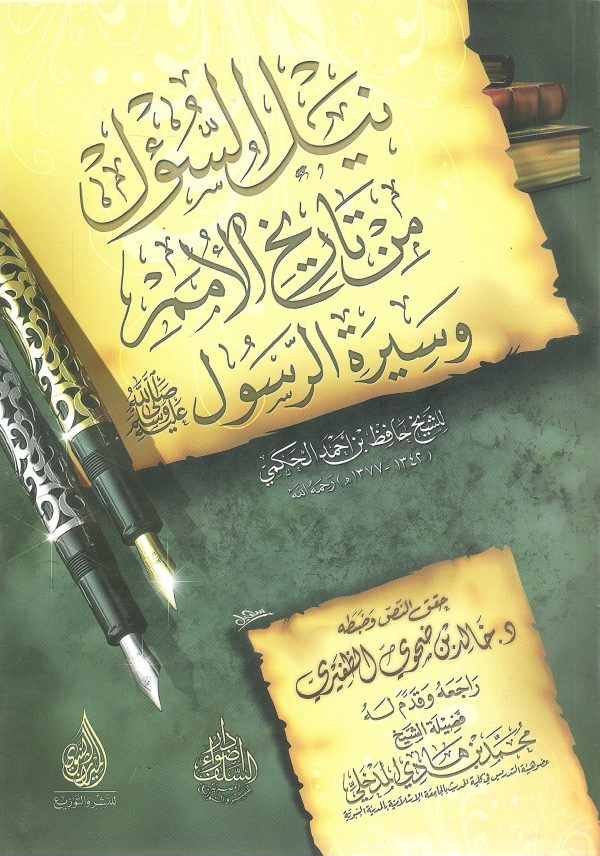 نيل السُّؤل
مِنْ تَارِيخِ الأُمَمِ
وَسِيرَةِ الرَّسُول ﷺ
للشيخ حَافِظ بْنِ أَحْمَد الحَكَمِي
(١٣٤٢ - ١٣٧٧ هـ) رحمهُ الله
حقق النصّ وَضبَطه
د. خَالِد بْن ضَحَوي الظَّفيري
رَاجَعهُ وَقدَّمَ لَهُ
فَضِيلَة الشَّيْخ
محَمَّد بْن هَادِي المدخَلي
عضو هيئة التدريس في كلية الحديث بالجامعة الإسلامية بالمدينة النبوية
دار
أضواء
السلف
الميراث النبوي
للنشر والتوزيع